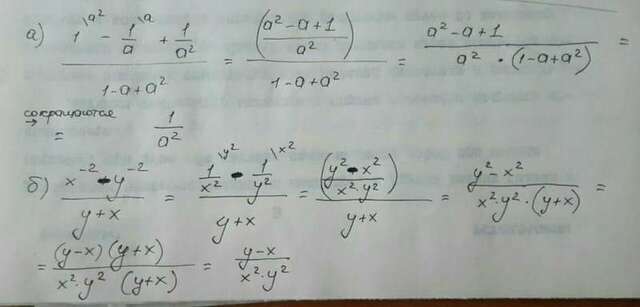 а) (1^{\a²} - 1/a^{\a} + 1/a²) / (1-a+a²) = ((a²-a+1)/a²) / (1-a+a²) = (a²-a+1) / (a² · (1-a+a²)) =
сокращаются → = 1/a²
б) (x⁻² - y⁻²) / (y+x) = (1/x²^{\y²} - 1/y²^{\x²}) / (y+x) = ((y²-x²)/(x²·y²)) / (y+x) = (y²-x²) / (x²·y²·(y+x)) =
= (y-x)(y+x) / (x²·y² (y+x)) = (y-x) / (x²·y²)